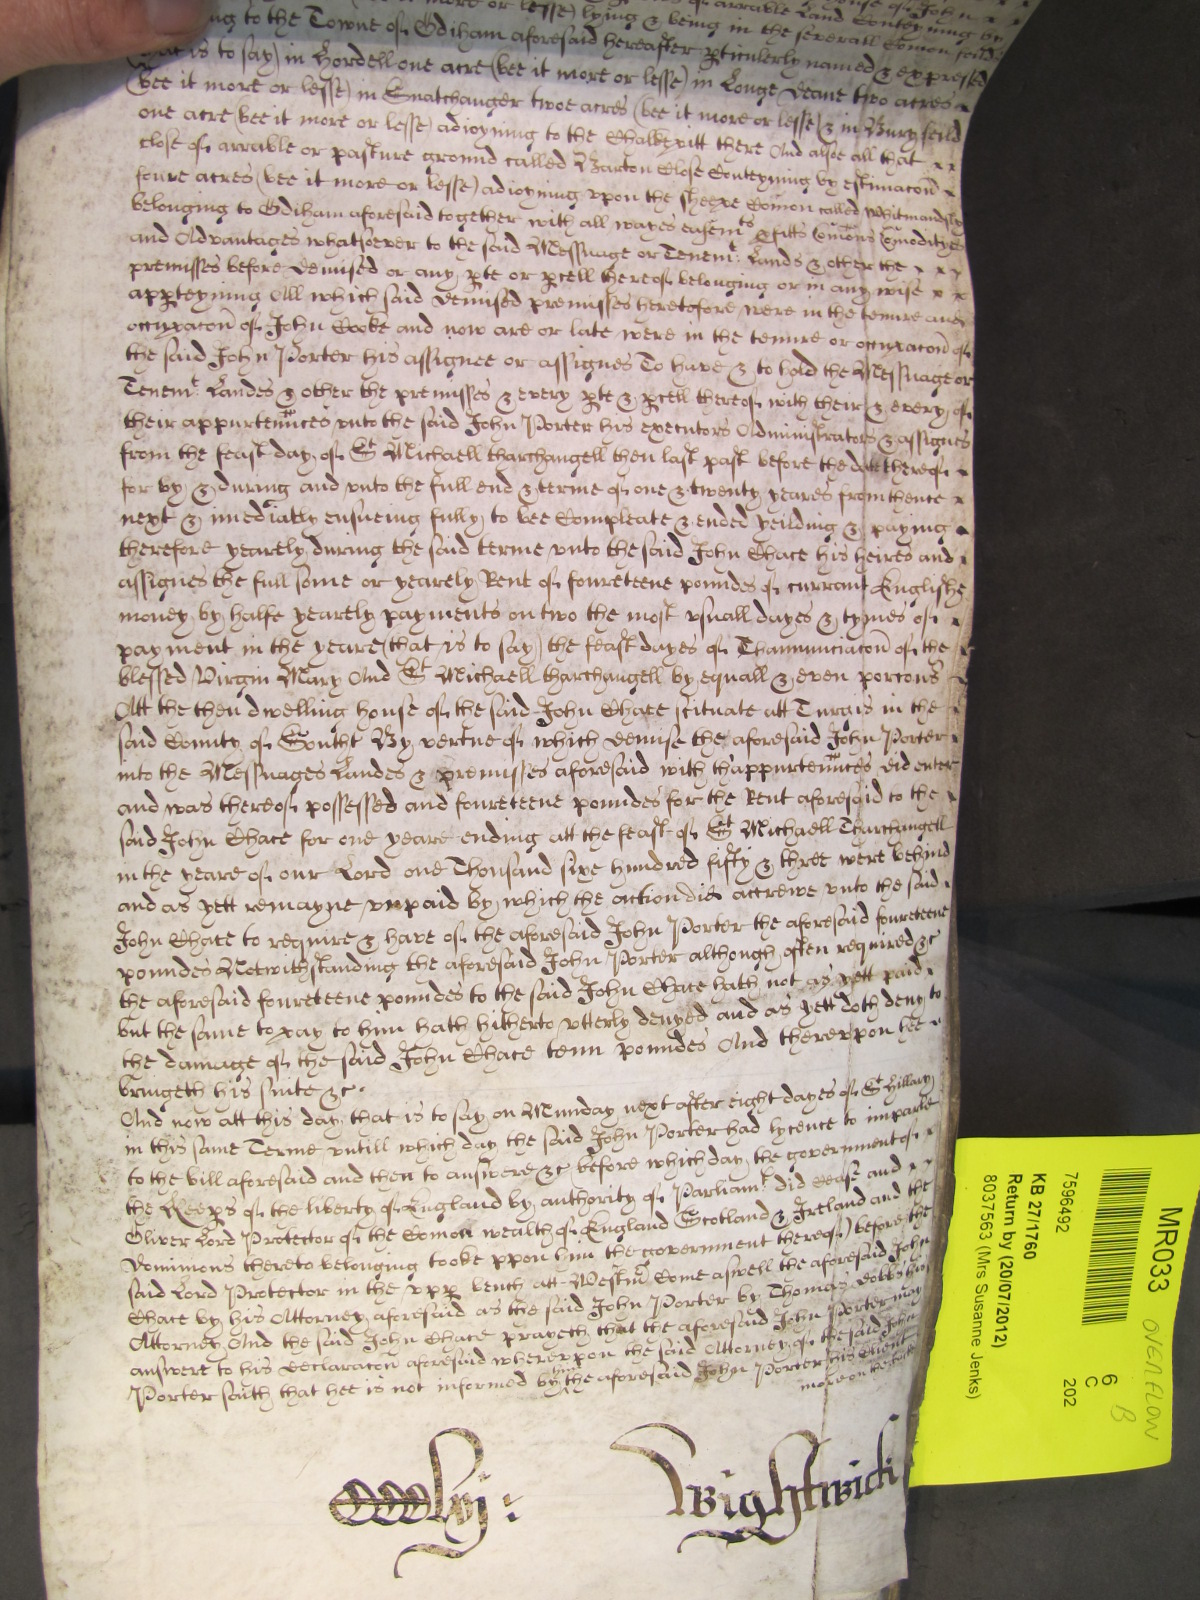 more or lesse) lyeing & being in the severall Comon feilds
ng to the Towne of Odiham aforesaid hereafter pticulerly named & expressed
that is to say) in Hordell one acre (bee it more or lesse) in Longe Deane two acres
(bee it more or lesse) in Snatchanger twoe acres (bee it more or lesse) & in Bury feild
one acre (bee it more or lesse) adioyning to the Chalkepitt there And alsoe all that x x
close of arrable or pasture ground called Barton Close Conteyning by estimacon
foure acres (bee it more or lesse) adioyning vpon the sheepe Comon called
belonging to Odiham aforesaid together with all wayes easemts pfitts Comons Comodityes
and Advantages whatsoever to the said Messuage or Tenemt Lands & other the x x x
premisses before demised or any pte or pcell thereof belonging or in any wise x x
appteyning All which said demised premisses heretofore were in the tenure and
occupacon of John Cooke and now are or late were in the tenure or occupacon of
the said John Porter his assignee or assignes To have & to hold the Messuage or
Tenemt Landes & other the premisses & every pte & pcell thereof with their & every of
their appurtennces vnto the said John Porter his executors Administrators & assignes
from the feast day of St Michaell tharchangell then last past before the date thereof
for by & during and vnto the full end & terme of one & twenty yeares from thence
next & imediatly ensueing fully to bee Compleate & ended yeilding & paying
therefore yearely during the said terme vnto the said John Chace his heires and
assignes the full some or yearely Rent of foureteene poundes of currant Englishe
money by halfe yearely payments on two the most vsuall dayes & tymes of
payment in the yeare (that is to say) the feast dayes of Thannunciacon of the
blessed Virgin Mary And St Michaell tharchangell by equall & even porcons
Att the then dwelling house of the said John Chace scituate att Turgis in the
said County of Southt By vertue of which demise the aforesaid John Porter
into the Messuages Landes & premisses aforesaid with thappurtennces did enter
and was thereof possessed and foureteene poundes for the Rent aforesaid to the
said John Chace for one yeare ending att the feast of St Michaell Tharchangell
in the yeare of our Lord one Thousand sixe hundred fifty & three were behind
and as yett remayne vnpaid by which the action did accrewe vnto the said
John Chace to require & have of the aforesaid John Porter the aforesaid foureteene
poundes Notwithstanding the aforesaid John Porter although often required &c
the aforesaid foureteene poundes to the said John Chace hath not as yett paid
but the same to pay to him hath hitherto vtterly denyed and as yett doth deny to
the damage of the said John Chace tenn poundes And therevpon hee
bringeth his suite &c.
And now att this day that is to say on Munday next after eight dayes of St Hillary
in this same Terme vntill which day the said John Porter had lycence to imparle
to the bill aforesaid and then to answere &c before which day the government of
the Keeps of the liberty of England by authority of Parliamt did cease and x x
Oliver Lord Protector of the Comon wealth of England Scotland & Ireland and the
Dominions thereto belonging tooke vpon him the government thereof) before the
said Lord Protector in the vpp bench att Westmr Come aswell the aforesaid John
Chace by his Attorney aforesaid as the said John Porter by Thomas his
Attorney And the said John Chace prayeth that the aforesaid John Porter may
answere to his declaracon aforesaid wherevpon the said Attorney of the said John
Porter saith that hee is not informed by the aforesaid John Porter his
more on the
Wightwick
MR033
OVERFLOW
6
B
C
202
7596492
KB 27/1760
Return by (20/07/2012)
8037563 (Mrs Susanne Jenks)